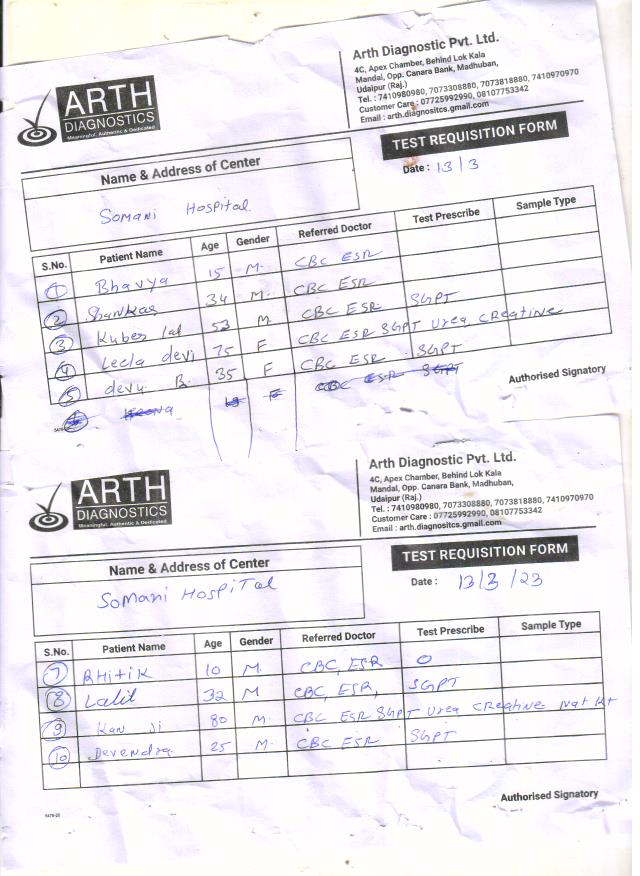 ARTH
DIAGNOSTICS
Meaningful, Authentic & Dedicated
Arth Diagnostic Pvt. Ltd.
4C, Apex Chamber, Behind Lok Kala
Mandal, Opp. Canara Bank, Madhuban,
Udaipur (Raj.)
Tel. : 7410980980, 7073308880, 7073818880, 7410970970
Customer Care : 07725992990, 08107753342
Email : arth.diagnositcs.gmail.com
TEST REQUISITION FORM
Name & Address of Center
Date : 13/3
Somani Hospital
S.No. Patient Name Age Gender Referred Doctor Test Prescribe Sample Type
1 Bhavya 15 M. CBC ESR
2 Shankar 34 M. CBC ESR
3 Kuber lal 53 M CBC ESR SGPT
4 Leela devi 75 F CBC ESR SGPT Urea Creatine
5 devu B. 35 F CBC ESR SGPT
CBC ESR SGPT
Authorised Signatory
5478-20
ARTH
DIAGNOSTICS
Meaningful, Authentic & Dedicated
Arth Diagnostic Pvt. Ltd.
4C, Apex Chamber, Behind Lok Kala
Mandal, Opp. Canara Bank, Madhuban,
Udaipur (Raj.)
Tel. : 7410980980, 7073308880, 7073818880, 7410970970
Customer Care : 07725992990, 08107753342
Email : arth.diagnositcs.gmail.com
TEST REQUISITION FORM
Name & Address of Center
Date : 13/3/23
Somani Hospital
S.No. Patient Name Age Gender Referred Doctor Test Prescribe Sample Type
7 Rhitik 10 M. CBC, ESR 0
8 Lalit 32 M CBC, ESR, SGPT
9 Kan Ji 80 M. CBC ESR SGPT Urea Creatine Nat Kt
10 Devendra 25 M. CBC ESR SGPT
Authorised Signatory
5478-20